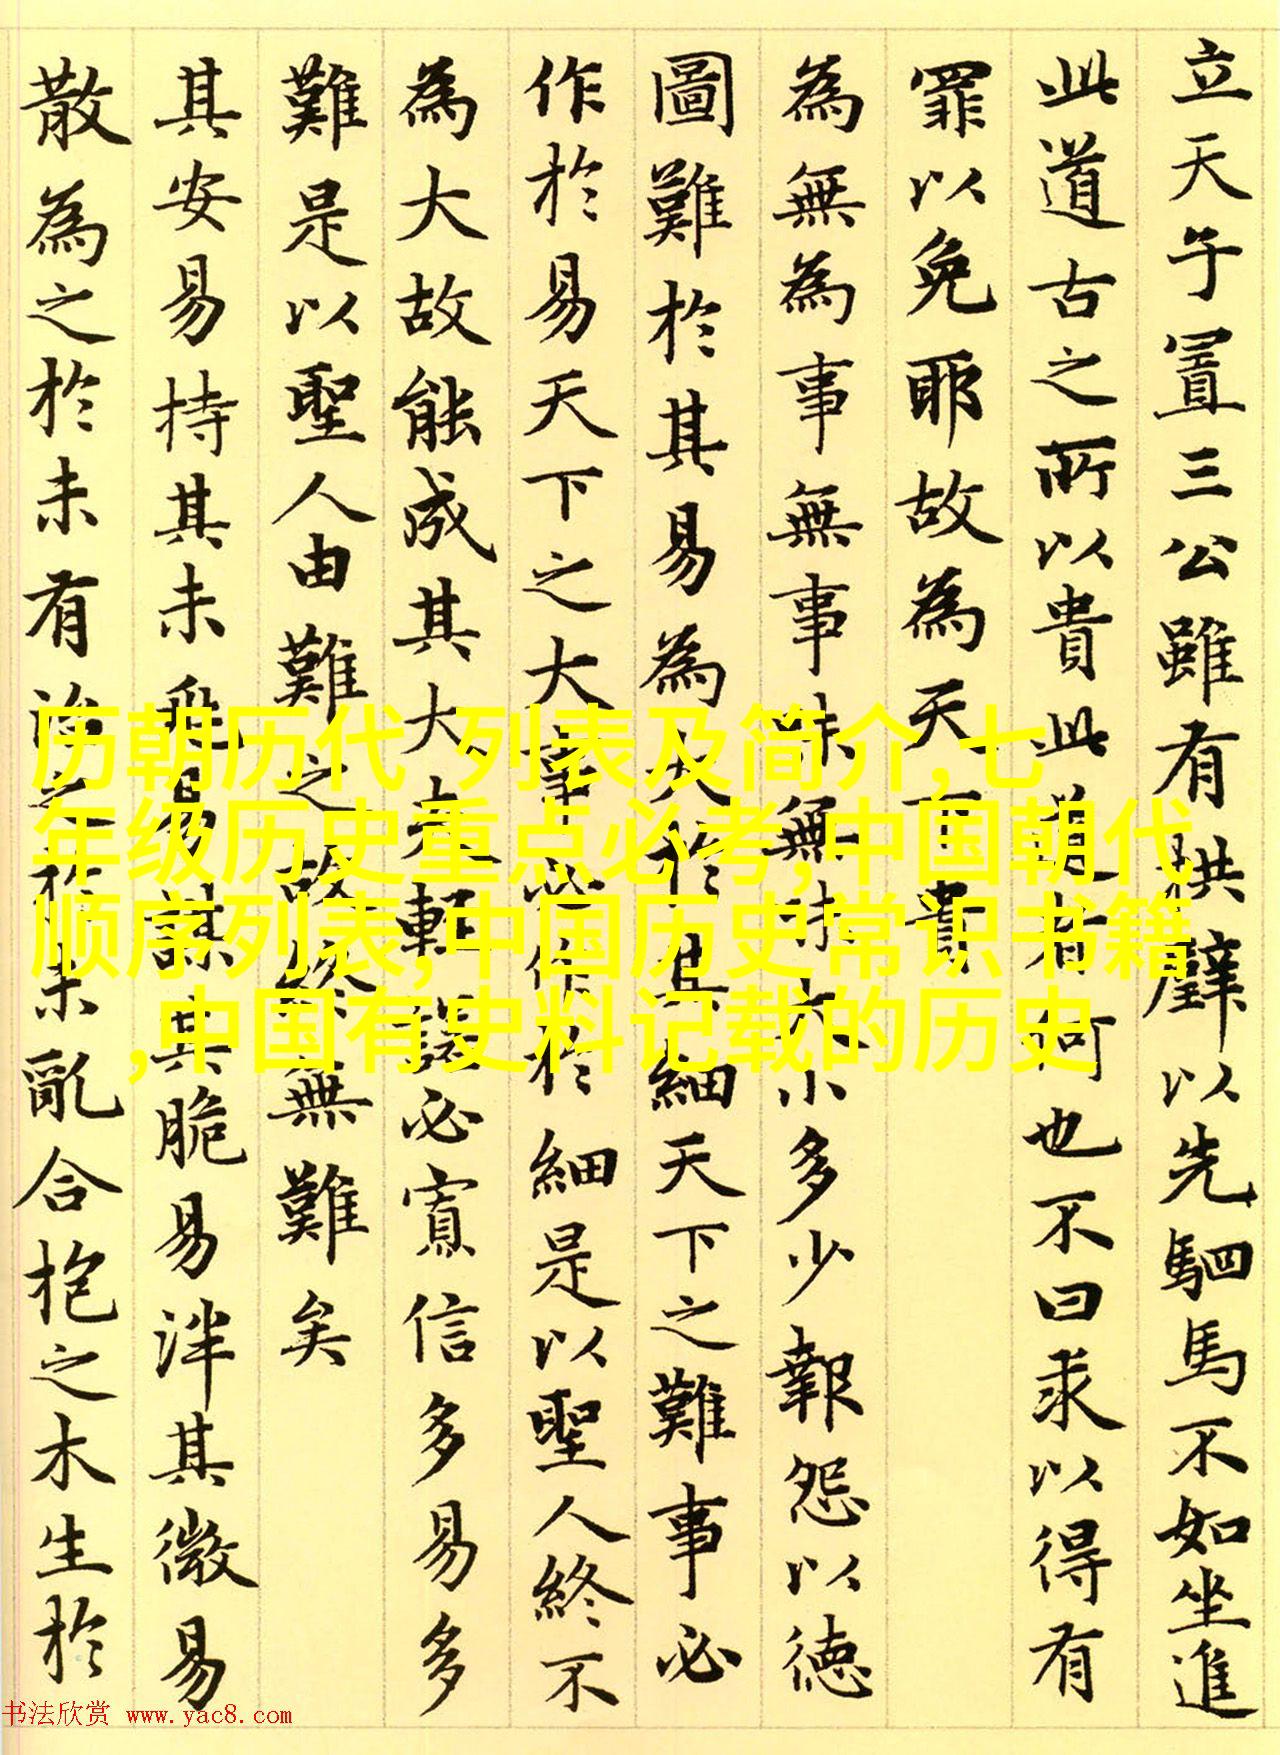 立天子置三公雖有拱璧以先駟馬不如坐進
此道古之所以貴此道者何也不曰求以得有
罪以免耶故為天下貴
為無為事無事味無味大小多少報怨以徳
圖難於其易為大於其細天下之難事必
作於易天下之大事必作於細是以聖人終不
為大故能成其大夫輕諾必寡信多易多
難是以聖人由難之故終無難矣
其安易持其未兆易謀其脆易泮其微易
散為之於未有治之於未亂合抱之木生於
历朝历代 列表及简介,七
年级历史重点必考,中国朝代
顺序列表,中国历史常识书籍
,中国有史料记载的历史
书法欣赏 www.yac8.com